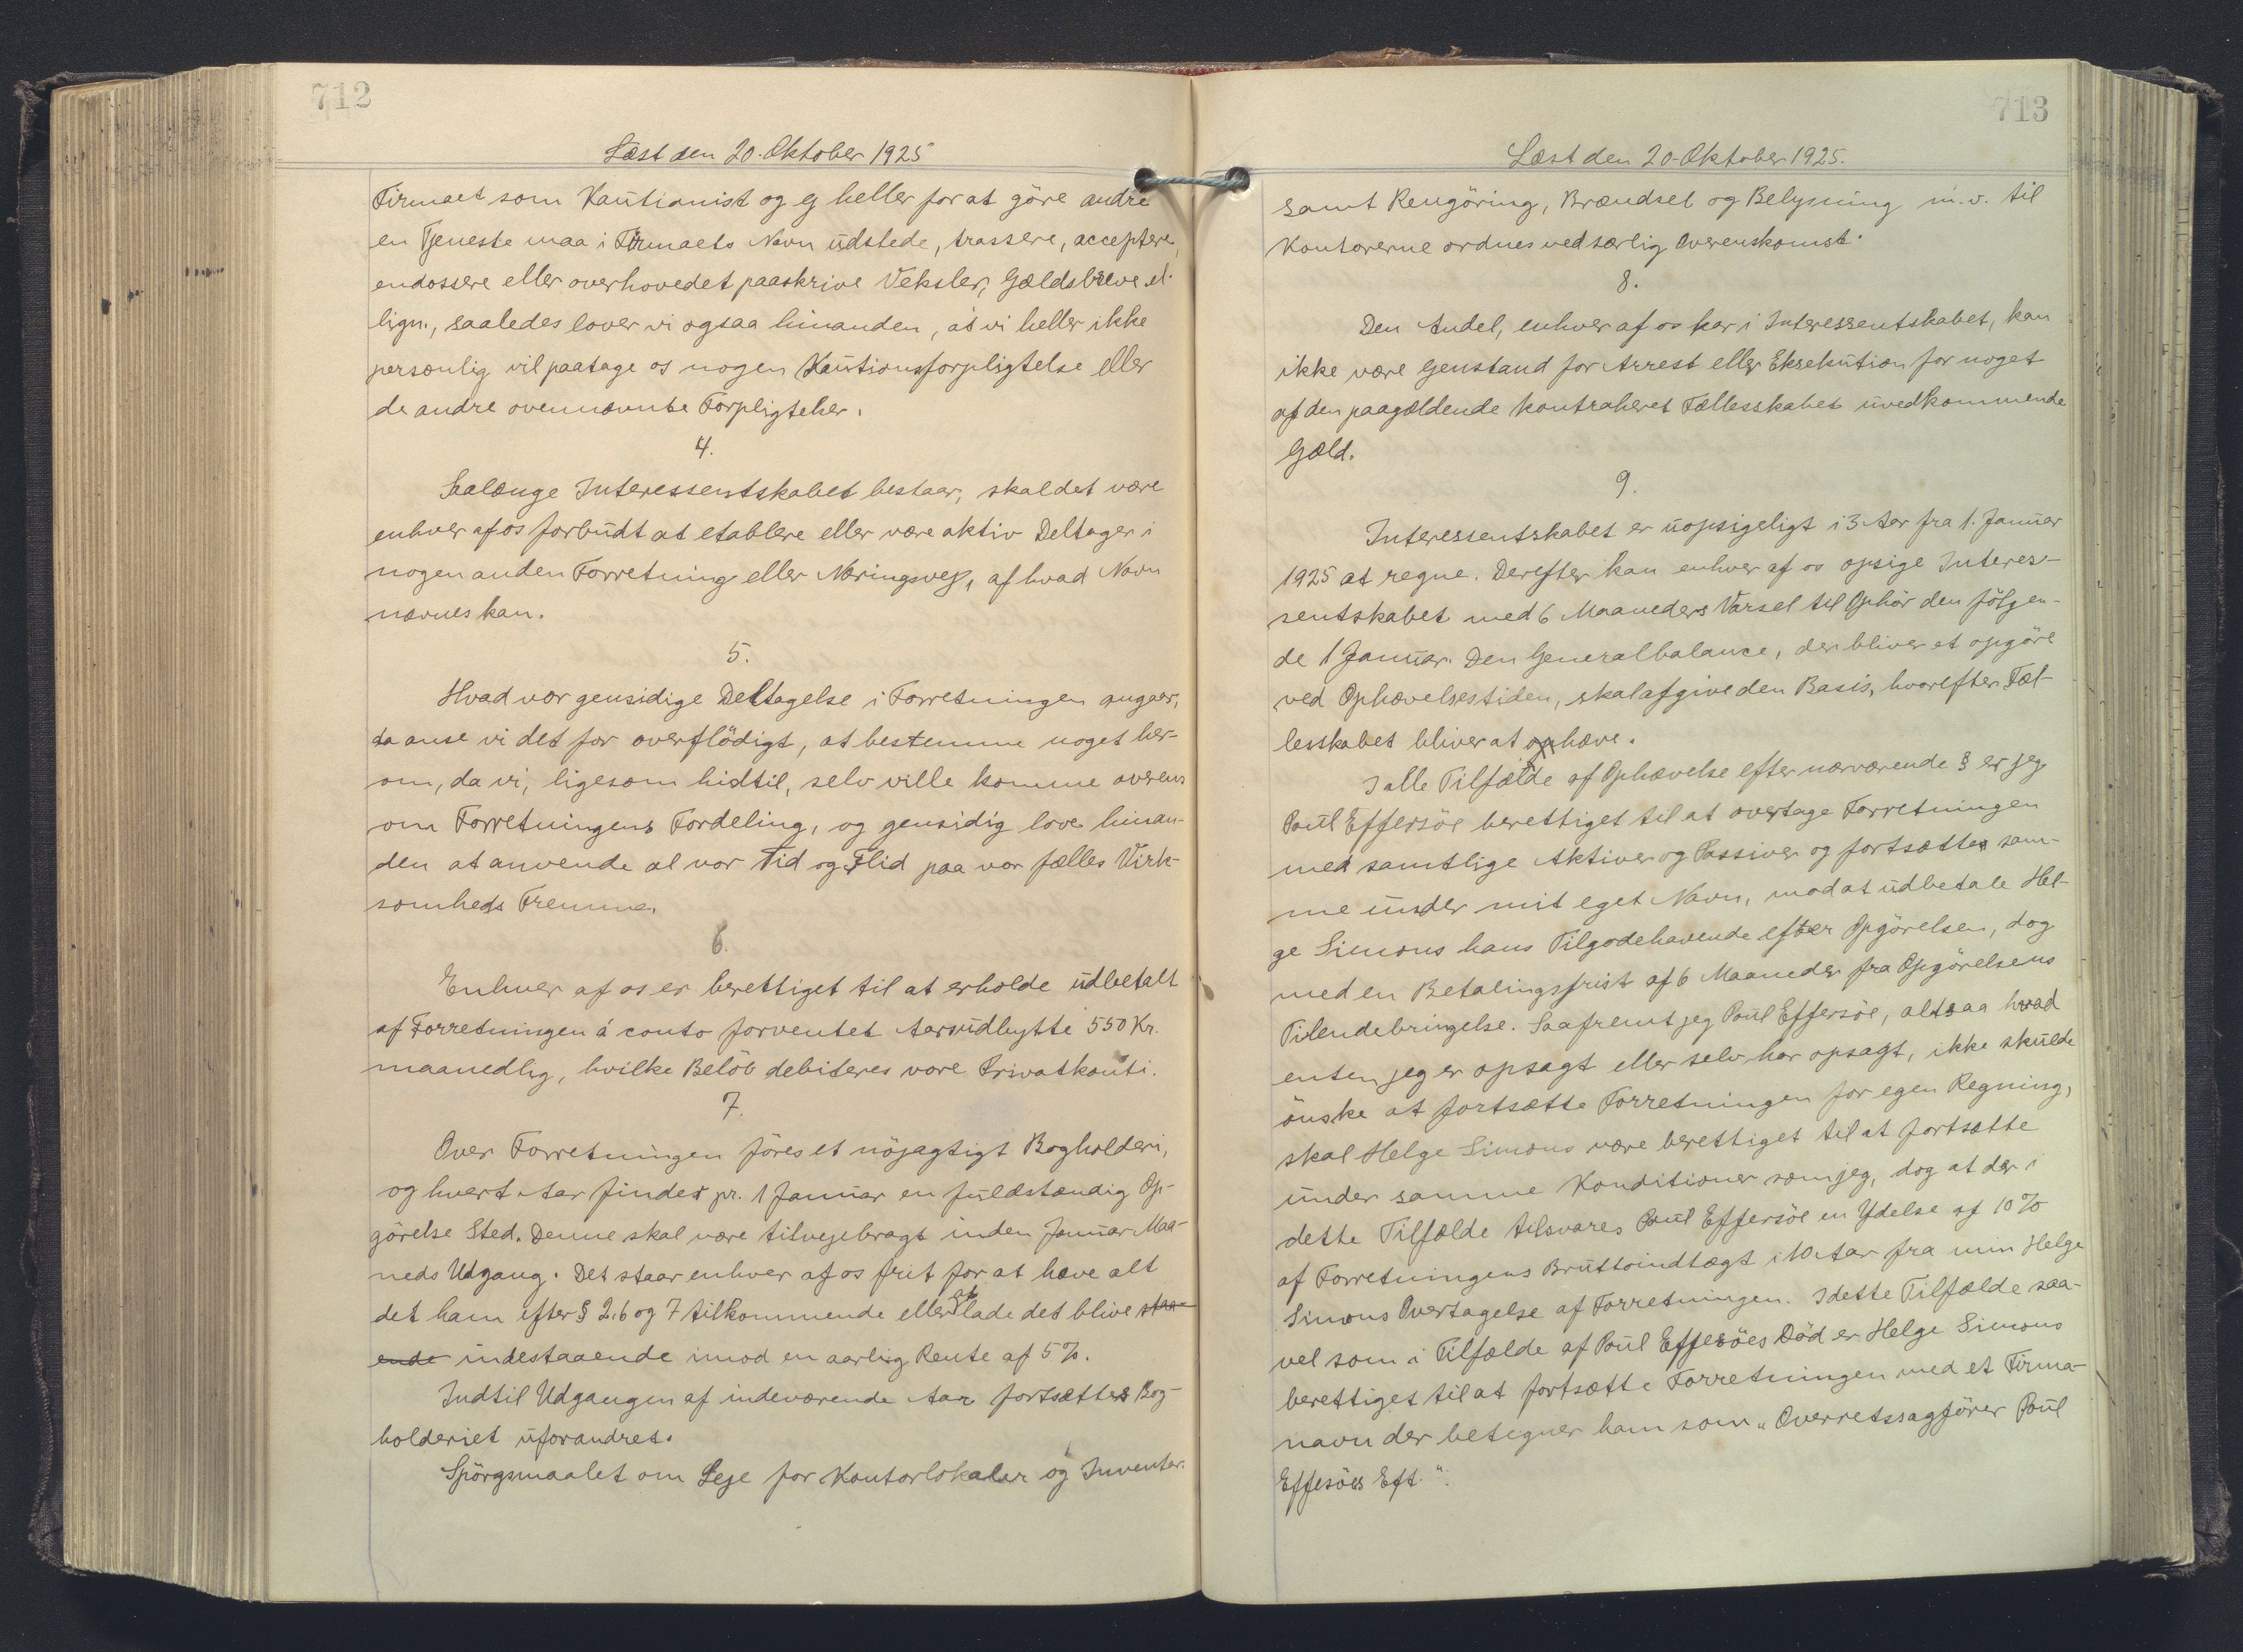 712
Læst den 20. Oktober 1925
Firmaet som Kautionist og ej heller for at göre andre
en Tjeneste maa i Firmaets Navn udstede, trassere, acceptere,
endossere eller overhovedet paaskrive Veksler, Gældsbreve el.
lign., saaledes lover vi ogsaa hinanden, at vi heller ikke
personlig vil paatage os nogen Kautionsforpligtelse eller
de andre ovennævnte Forpligtelser.
4.
Saalænge Interessentskabet bestaar, skal det være
enhver af os forbudt at etablere eller være aktiv Deltager i
nogen anden Forretning eller Næringsvej, af hvad Navn
nævnes kan.
5.
Hvad vor gensidige Deltagelse i Forretningen angaar,
da anse vi det for overflödigt, at bestemme noget her-
om, da vi, ligesom hidtil, selv ville komme overens
om Forretningens Fordeling, og gensidig love hinan-
den at anvende al vor Tid og Flid paa vor fælles Virk-
somheds Fremme.
6.
Enhver af os er berettiget til at erholde udbetalt
af Forretningen á conto forventet Aarsudbytte 550 Kr.
maanedlig, hvilke Belöb debiteres vore Privatkonti.
7.
Over Forretningen föres et nöjagtigt Bogholderi,
og hvert Aar finder pr. 1 Januar en fuldstændig Op-
görelse Sted. Denne skal være tilvejebragt inden Januar Maa-
neds Udgang. Det staar enhver af os frit for at hæve alt
det ham efter § 2, 6 og 7 tilkommende eller at lade det blive staa-
ende indestaaende imod en aarlig Rente af 5 %.
Indtil Udgangen af indeværende Aar fortsættes Bog-
holderiet uforandret.
Spörgsmaalet om Leje for Kontorlokaler og Inventar
713
Læst den 20. Oktober 1925.
samt Rengöring, Brændsel og Belysning m.v. til
Kontorerne ordnes ved særlig Overenskomst.
8.
Den Andel, enhver af os har i Interessentskabet, kan
ikke være Genstand for Arrest eller Eksekution for noget
af den paagældende kontraheret Fællesskabet uvedkommende
Gæld.
9.
Interessentskabet er uopsigeligt i 3 Aar fra 1. Januar
1925 at regne. Derefter kan enhver af os opsige Interes-
sentskabet med 6 Maaneders Varsel til Ophör den fölgen-
de 1 Januar. Den Generalbalance, der bliver at opgöre
ved Ophævelsestiden, skal afgive den Basis, hvorefter Fæl-
lesskabet bliver at ophæve.
I alle Tilfælde af Ophævelse efter nærværende § er jeg
Poul Effersöe berettiget til at overtage Forretningen
med samtlige Aktiver og Passiver og fortsætte sam-
me under mit eget Navn, mod at udbetale Hel-
ge Simons hans Tilgodehavende efter Opgörelsen, dog
med en Betalingsfrist af 6 Maaneder fra Opgörelsens
Tilendebringelse. Saafremt jeg Poul Effersöe, altsaa hvad
enten jeg er opsagt eller selv har opsagt, ikke skulde
önske at fortsætte Forretningen for egen Regning,
skal Helge Simons være berettiget til at fortsætte
under samme Konditioner som jeg, dog at der i
dette Tilfælde tilsvares Poul Effersöe en Ydelse af 10 %
af Forretningens Bruttoindtægt i 10 Aar fra min Helge
Simons Overtagelse af Forretningen. I dette Tilfælde saa-
vel som i Tilfælde af Poul Effersöes Död er Helge Simons
berettiget til at fortsætte Forretningen med et Firma-
navn der betegner ham som "Overretssagförer Poul
Effesöes Eft.".